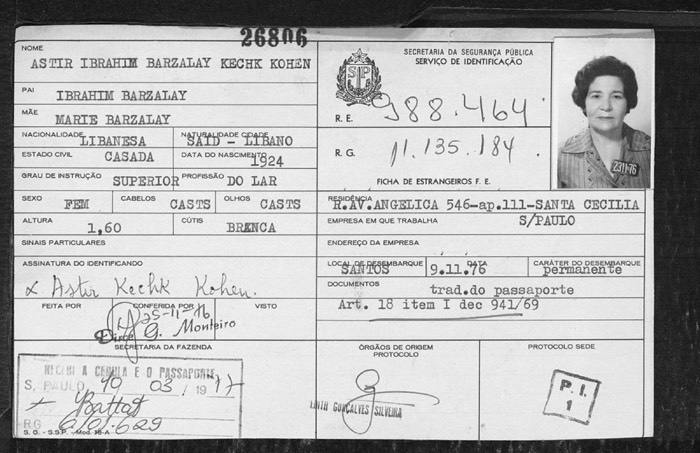 26806
NOME
ASTIR IBRAHIM BARZALAY KECHK KOHEN
PAI
IBRAHIM BARZALAY
MÃE
MARIE BARZALAY
NACIONALIDADE
LIBANESA
NATURALIDADE CIDADE
SAID - LIBANO
ESTADO CIVIL
CASADA
DATA DO NASCIMENTO
1924
GRAU DE INSTRUÇÃO
SUPERIOR
PROFISSÃO
DO LAR
SEXO
FEM
CABELOS
CASTS
OLHOS
CASTS
ALTURA
1,60
CÚTIS
BRANCA
SINAIS PARTICULARES
ASSINATURA DO IDENTIFICANDO
Astir Kechk Kohen.
FEITA POR
CONFERIDA POR
VISTO
25-11-76
Dirce G. Monteiro
SECRETARIA DA FAZENDA
RECEBI A CEDULA E O PASSAPORTE
S. PAULO, 10 03 / 1977
RG
S. G. - S.S.P. - Mod. 16-A
SECRETARIA DA SEGURANÇA PÚBLICA
SERVIÇO DE IDENTIFICAÇÃO
SP
R. E. 988.464
R. G. 11.135.184
FICHA DE ESTRANGEIROS F. E.
2311-76
RESIDÊNCIA
R.AV.ANGELICA 546-ap.111-SANTA CECILIA
EMPRESA EM QUE TRABALHA
S/PAULO
ENDEREÇO DA EMPRESA
LOCAL DE DESEMBARQUE
SANTOS
9.11.76
CARÁTER DO DESEMBARQUE
permanente
DOCUMENTOS
trad.do passaporte
Art. 18 item I dec 941/69
ÓRGÃOS DE ORIGEM
PROTOCOLO
GONÇALVES SILVEIRA
PROTOCOLO SEDE
P. I.
1